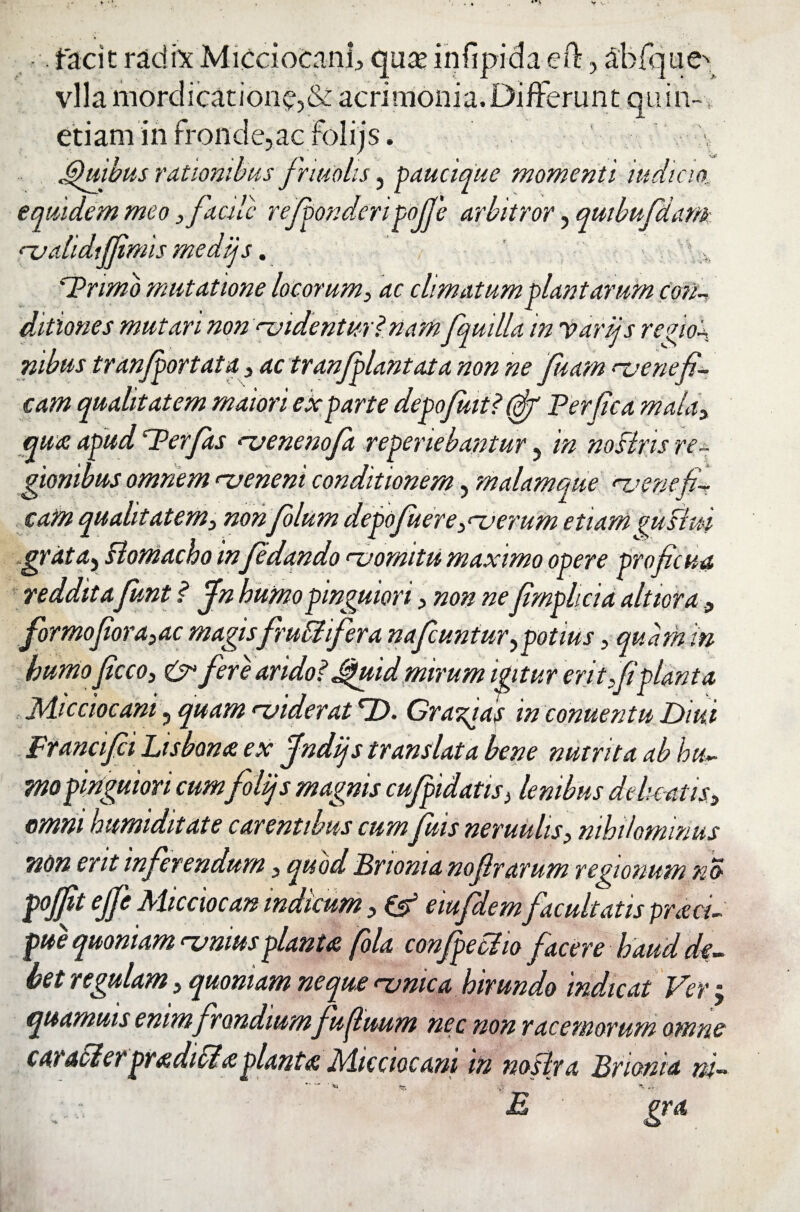 facit radix Micciocani, quæ insipida est, absque
vlla mordicatione, & acrimonia. Differunt quin-
etiam in fronde, ac folijs.
Quibus rationibus friuolis, paucique momenti iudicio
equidem meo, facile responderi posse arbitror, quibusdam
validissimis medijs.
Primo mutatione locorum, ac climatum plantarum con-
ditiones mutari non videntur? nam squilla in varijs regio-
nibus transportata, ac transplantata non ne suam venefi-
cam qualitatem maiori ex parte deposuit? & Persica mala,
quæ apud Persas venenosa reperiebantur, in nostris re-
gionibus omnem veneni conditionem, malamque venefi-
cam qualitatem, non solum deposuere, verum etiam gustui
grata, stomacho in sedando vomitu maximo opere proficua
reddita sunt? In humo pinguiori, non ne simplicia altiora,
formosiora, ac magis fructifera nascuntur, potius, quam in
humo sicco, & fere arido? Quid mirum igitur erit, si planta
Micciocani, quam viderat D. Grazias in conuentu Diui
Francisci Lisbonæ ex Indijs translata bene nutrita ab hu-
mo pinguiori cum folijs magnis cuspidatis, lenibus delicatis,
omni humiditate carentibus cum suis neruulis, nihilominus
non erit inferendum, quod Brionia nostrarum regionum nō
possit esse Micciocan indicum, & eiusdem facultatis præci-
pue quoniam vnius plantæ sola conspectio facere haud de-
bet regulam, quoniam neque vnica hirundo indicat Ver;
quamuis enim frondium fustuum nec non racemorum omne
caracter prædictæ plantæ Micciocani in nostra Brionia ni-
E gra